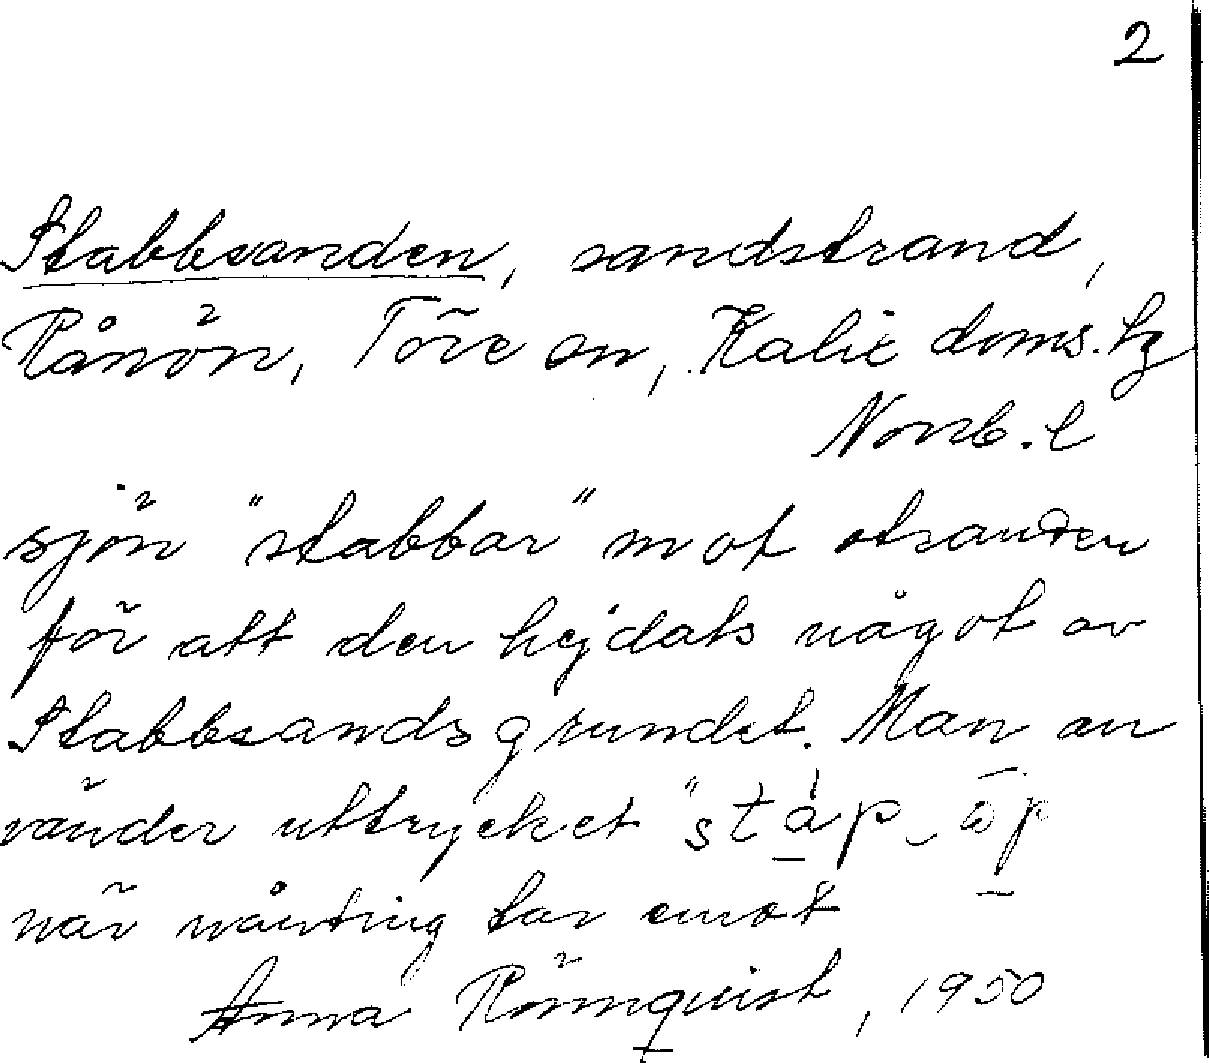 2
Stabbsanden, sandstrand,
Rånön, Töre sn, Kalix doms. tg
Norrb. l
sjön "stabbar" mot stranden
för att den hejdats något av
Stabbsandsgrundet. Man an
vänder uttrycket "stap
när nånting tar emot
Anna Rönnquist, 1950